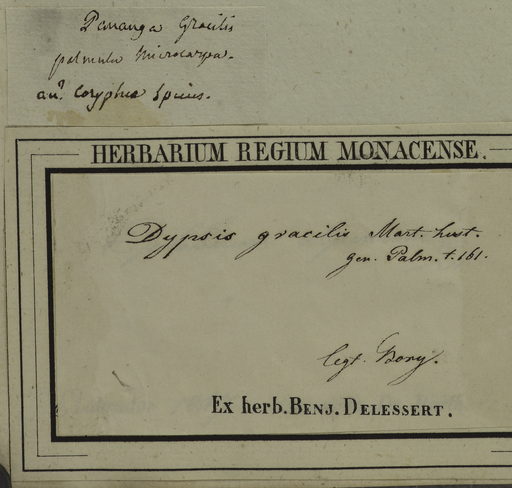 Pananga Gracilis
palmula Microcarpa.
an? Coryphae Species.
HERBARIUM REGIUM MONACENSE.
Dypsis gracilis Mart. hist.
gen. Palm. t. 161.
legt. Bory.
Ex herb. BENJ. DELESSERT.